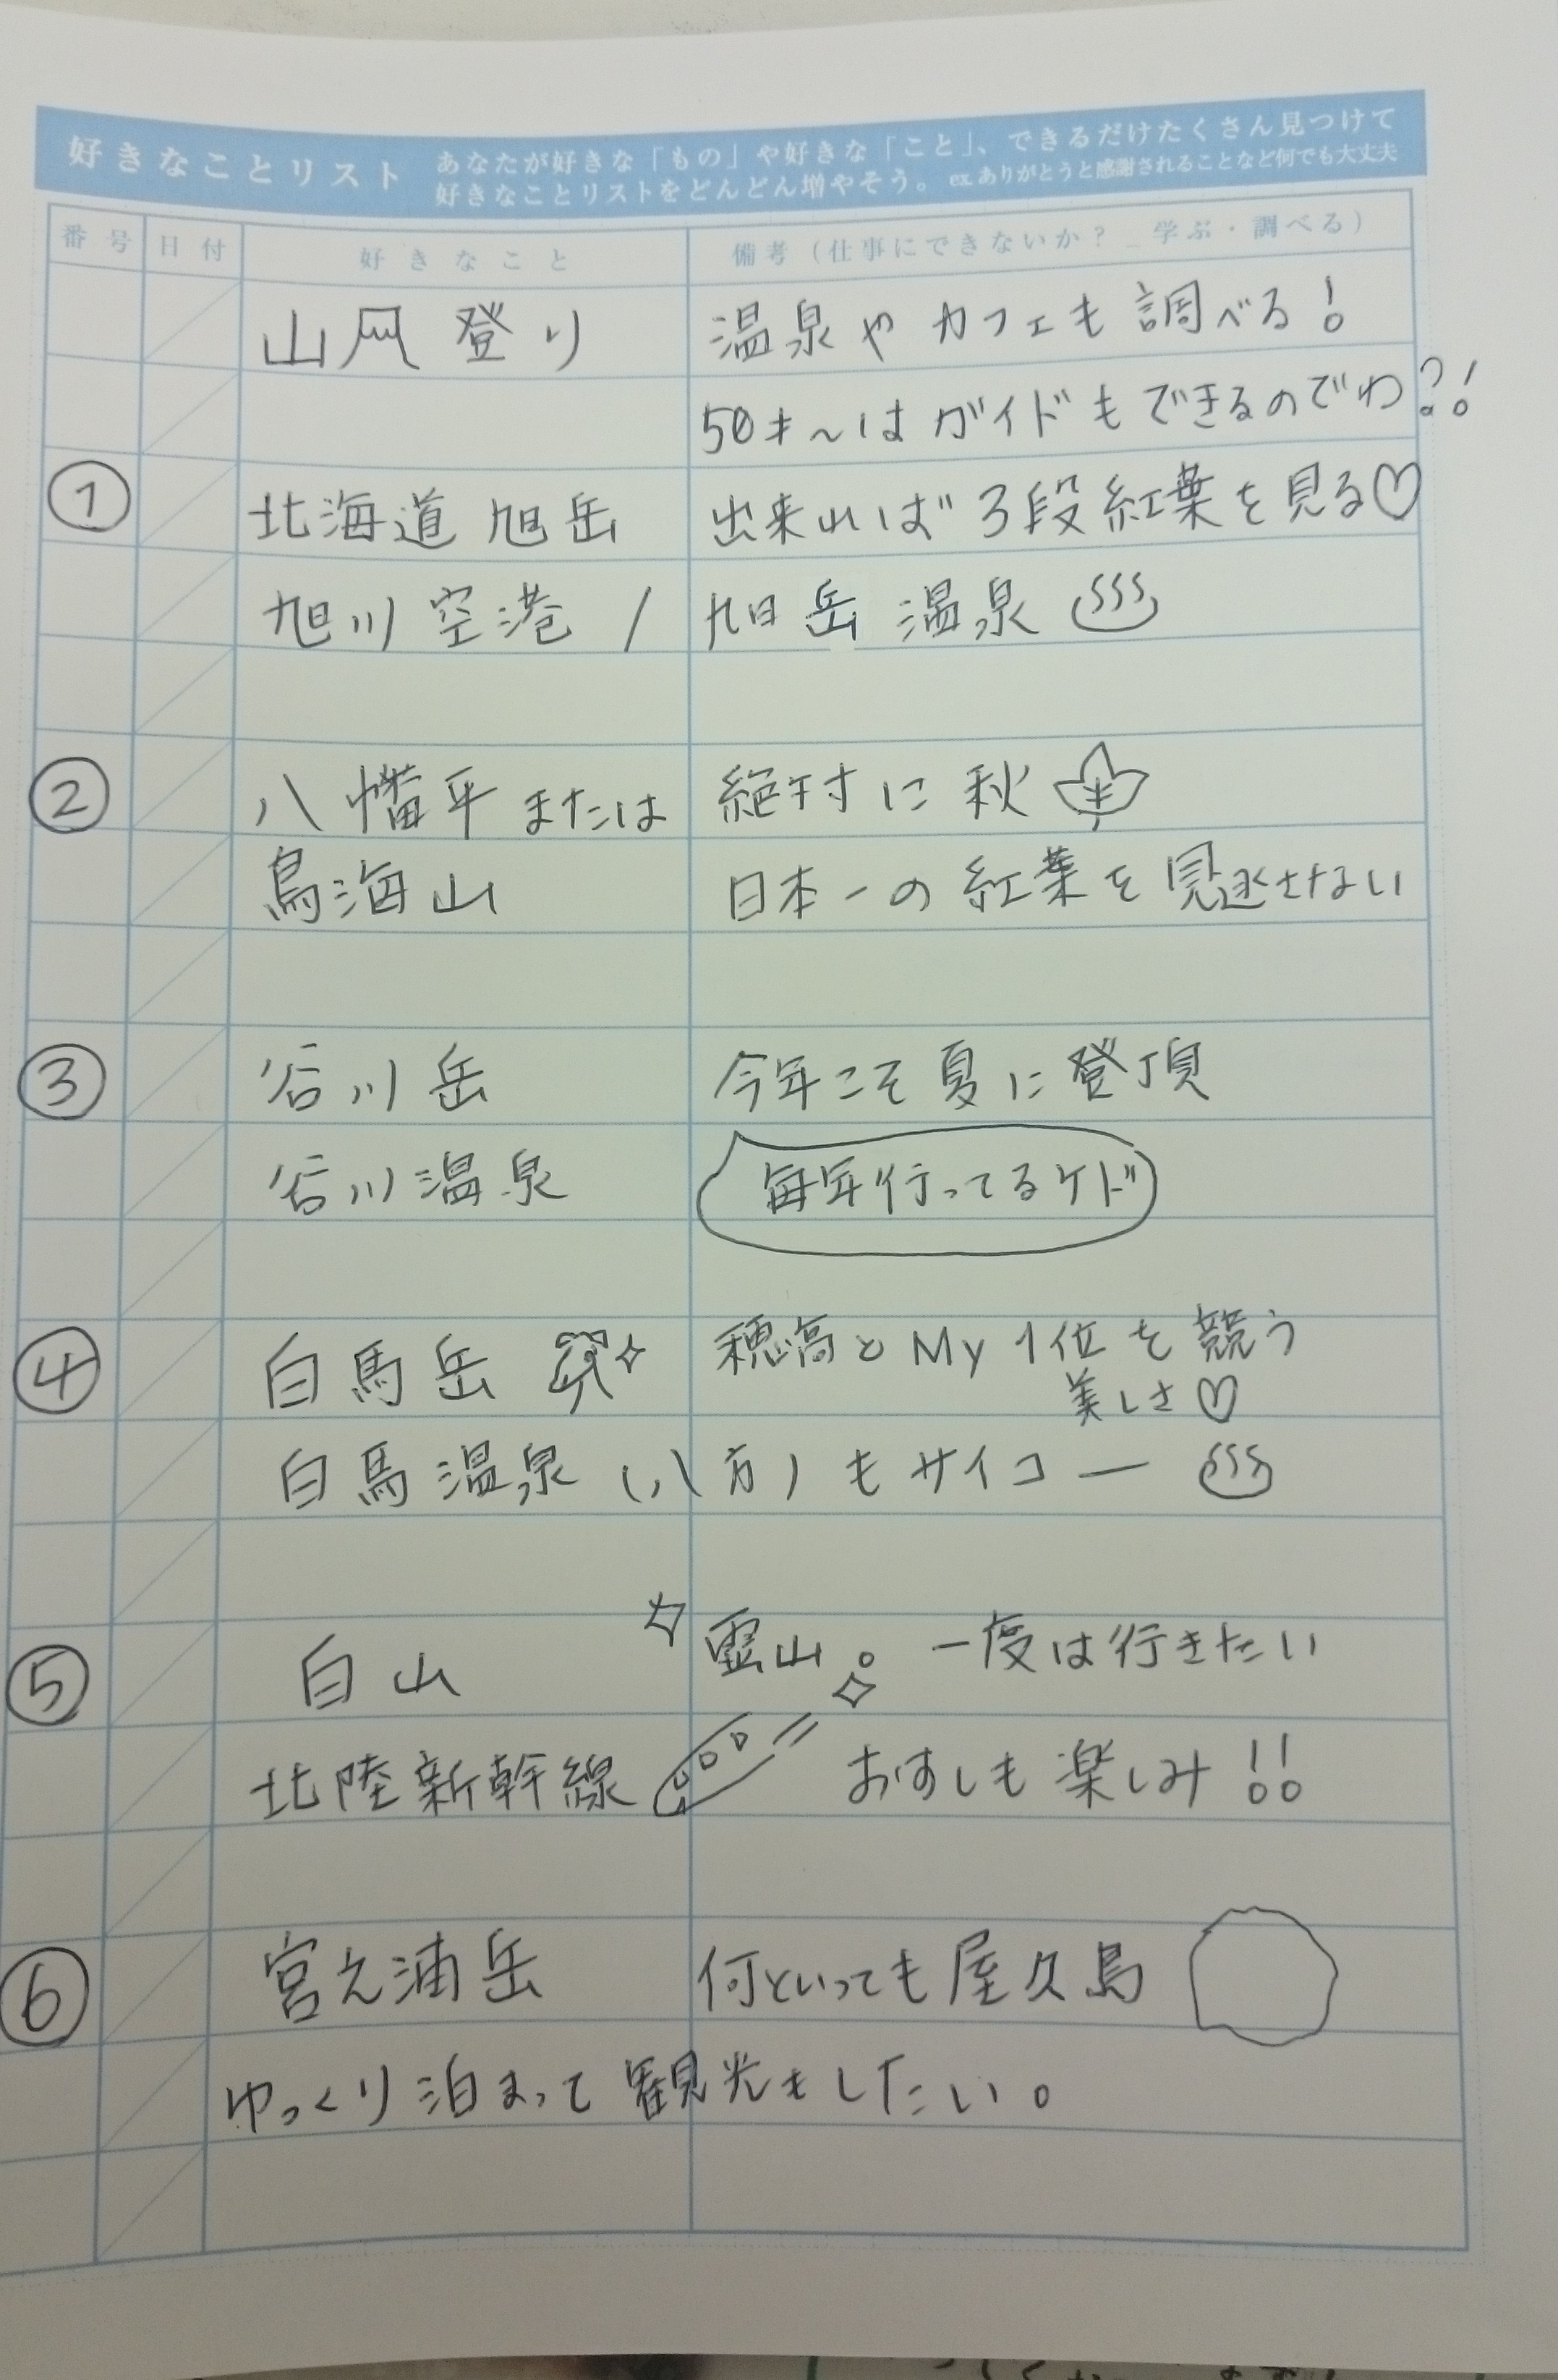 好きなことリスト
あなたが好きな「もの」や好きな「こと」、できるだけたくさん見つけて
好きなことリストをどんどん増やそう。 ex.ありがとうと感謝されることなど何でも大丈夫
番号 日付 好きなこと 備考（仕事にできないか？_学ぶ・調べる）
山登り 温泉やカフェも調べる！
50キ〜はガイドもできるのでわ?!
① 北海道 旭岳 出来れば3段紅葉を見る♡
旭川空港 / 旭岳温泉
② 八幡平または 絶対に秋
鳥海山 日本一の紅葉を見逃せない
③ 谷川岳 今年こそ夏に登頂
谷川温泉 毎年行ってるケド
④ 白馬岳 穂高とMy1位を競う
美しさ♡
白馬温泉(八方)もサイコー
⑤ 白山 霊山。一度は行きたい
北陸新幹線 おすしも楽しみ!!
⑥ 宮之浦岳 何といっても屋久島
ゆっくり泊まって観光もしたい。